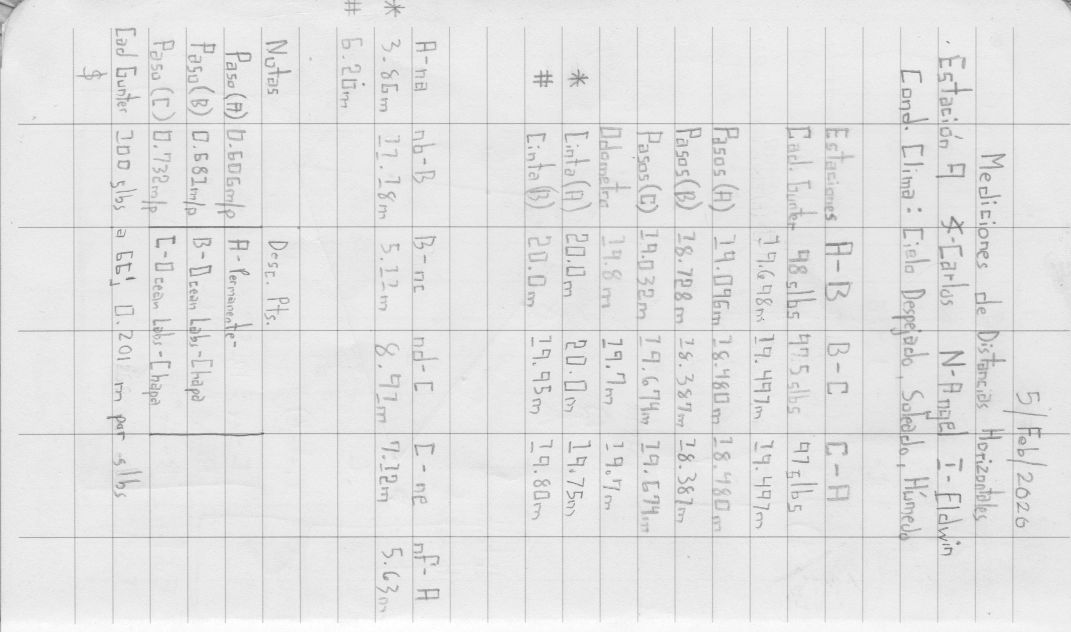 5/Feb/2026
Mediciones de Distancias Horizontales
. Estación A X-Carlos N-Angel I-Eldwin
Cond. Clima: Cielo Despejado, Soleado, Húmedo
Estaciones A-B B-C C-A
Cad. Gunter 98 slbs 97.5 slbs 97 slbs
19.698m 19.497m 19.497m
Pasos (A) 19.096m 18.480m 18.480m
Pasos (B) 18.728m 18.387m 18.387m
Pasos (C) 19.032m 19.674m 19.674m
Odometro 19.8m 19.7m 19.7m
* Cinta (A) 20.0m 20.0m 19.75m
# Cinta (B) 20.0m 19.95m 19.80m
A-na nb-B B-nc nd-C C-ne nf-A
* 3.86m 11.18m 5.12m 8.97m 7.12m 5.63m
# 6.20m
Notas Desc. Pts.
Paso (A) 0.606m/p A-Permanente-
Paso (B) 0.681m/p B-Ocean Labs-Chapa
Paso (C) 0.732m/p C-Ocean Labs-Chapa
Cad Gunter 100 slbs a 66', 0.2012 m por slbs
$